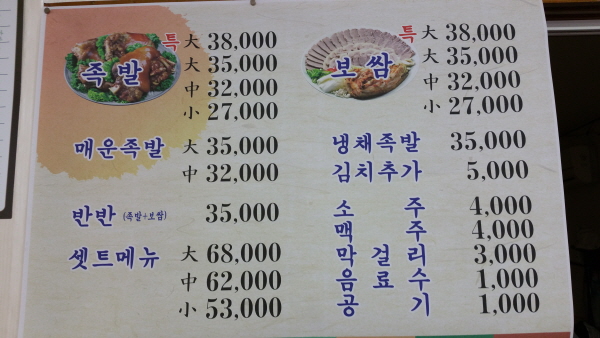 족발
특 大 38,000
大 35,000
中 32,000
小 27,000
매운족발 大 35,000
中 32,000
반반 (족발+보쌈) 35,000
셋트메뉴 大 68,000
中 62,000
小 53,000
보쌈
특 大 38,000
大 35,000
中 32,000
小 27,000
냉채족발 35,000
김치추가 5,000
소주 4,000
맥주 4,000
막걸리 3,000
음료수 1,000
공기 1,000